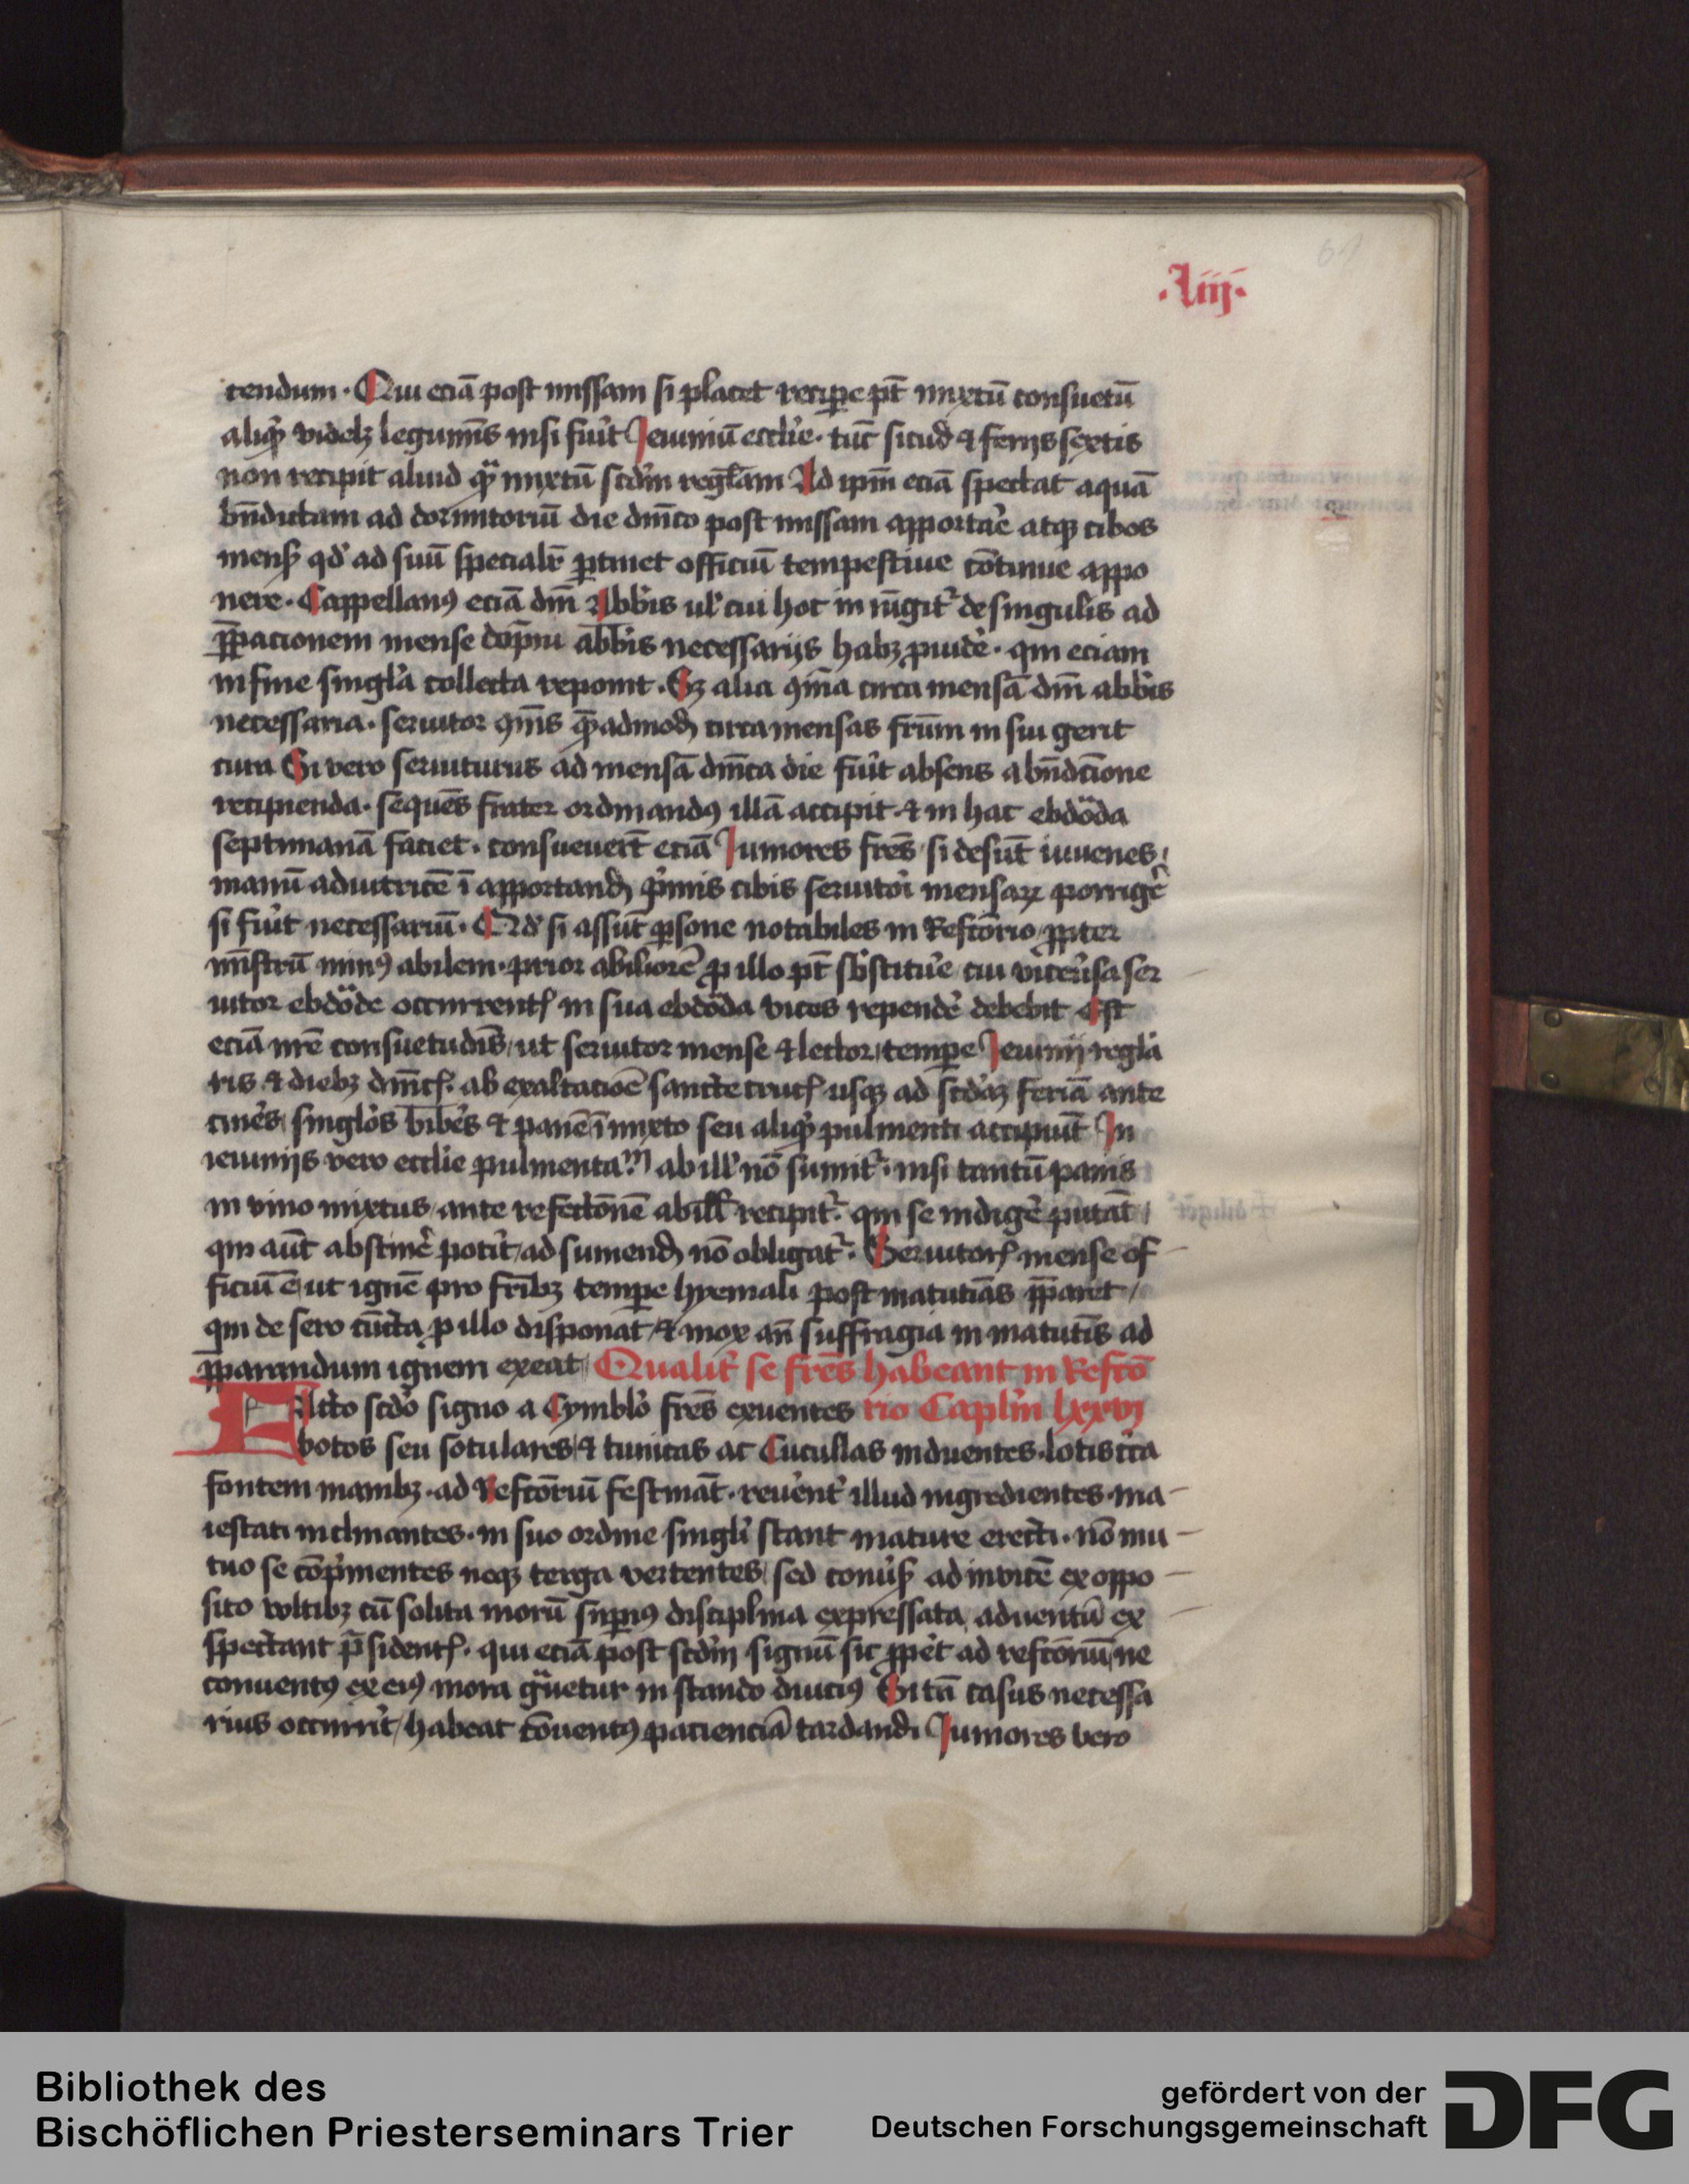 ·liij·
tendum · Qui eciā post missam si placet reciꝑe pt̄ mixtū consuetū
aliqͦ videlz legumīs nisi fuīt Jeiuniū eccl̓ie · tūc sicud ⁊ ferijs sextis
non recipit aliud qͣ mixtū scd̓m regl̄am Ad ipm̄ eciā spectat aquā
bn̄dictam ad dormitoriū die dn̄ico post missam apportar̄e atqꝫ cibos
mens̄ qd̓ ad suū specialr̄ ꝑtinet officiū tempestiue cōtinue appo
nere · Cappellanꝰ eciā dn̄i Abb̓is ul̓ cui hoc in iūgit᷑ de singulis ad
p̄ꝑacionem mense dop̄ni abb̓is necessarijs habꝫ ꝓuidēr · qui eciam
in fine singl̓a collecta reponit · Sꝫ alia ꝯīa circa mensā dn̄i abb̓is
necessaria · seruitor ꝯīs qͣ̄admod̄ circa mensas frūm in sui gerit
cura Si vero seruiturus ad mensā dn̄ica die fuīt absens a bn̄dc̄ione
recipienda · sequēs frater ordinandꝰ illā accipit · ⁊ in hac ebdōda
septimanā faciet · consueuer̄t eciā Juniores fr̄es si desūt iuuenes
manū adiutricē ī apportand̄ p̓mis cibis seruitor̄i mensaꝝ porrigēr
si fuīt necessariū · Qd̓ si assūt ꝑsone notabiles in Refc̄orio ꝓpter
mīstrū minꝰ abilem · prior abiliorē ꝓ illo pt̄ sb̓stituēr cui viceūsa ser
uitor ebdōde occurrent̄ in sua ebdōda vices rependēr debebit Est
eciā nr̄e consuetudīs ut seruitor mense ⁊ lector tempe Jeiunij regla
ris ⁊ diebꝫ dn̄ic̄ · ab exaltacioē sancte cruc̄ usqꝫ ad scd̓aꝫ feriā ante
cin̄es singl̓os bib̓es ⁊ panē ī mixto seu aliqͦ pulmenti accipiūt In
ieiunijs vero eccl̓ie pulmentaᵐ ab ill̓ nō sumit᷑ · nisi tantū panis
in vino mixtus ante refectōnē ab ill̄ recipit᷑ · qui se indigēr putāt
qui aūt abstinēr potīt ad sumend̄ nō obligat᷑ · Seruitor̄ mense of
ficiū ē ut ignē pro fr̄ibꝫ tempe hyemali post matutīas p̄ꝑaret
qui de sero cūcta ꝓ illo disponat ⁊ mox an̄ suffragia in matutīs ad
p̄ꝑarandum ignem exeat Qualit̓ se fr̄es habeant in Refctō
rio Capl̓m lxxvi
Facto scd̓o signo a Cymbl̓o fr̄es exuentes
botos seu sotulares ⁊ tunicas ac Cucullas induentes · lotis cīca
fontem manibꝫ · ad Refc̄oriū festināt · reuēnt̓ illud ingredientes ma
iestati inclinantes · in suo ordine singl̓i stant mature erecti · nō mu
tuo se cōp̓mentes neqꝫ terga vertentes sed conūs̄ ad invicē ex oppo
sito voltibꝫ cū solita morū suꝑiꝰ disciplina expressata aduentū ex
spectant p̄sident̄ · qui eciā post scd̓m signū sic ꝓpēt ad refc̄oriū ne
conuentꝰ ex eiꝰ mora gͣuetur in stando diucīꝰ Si tn̄ casus necessa
rius occurrīt habeat cōuentꝰ pacienciā tardandi Juniores vero
Bibliothek des
Bischöflichen Priesterseminars Trier
gefördert von der
Deutschen Forschungsgemeinschaft
DFG